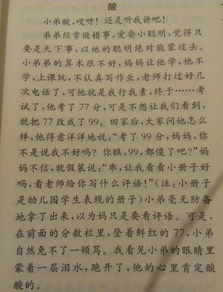 酸
小弟酸，哎呀！还是听我讲吧！
弟弟经常做错事，爱耍小聪明，觉得只
要是天下事，以他的聪明绝对能蒙过去。
小弟弟的算术很不好，妈妈让他学，他不
学，上课玩，不认真写作业，老师打过好几
次电话了，可他就是我行我素，终于……考
试了，他考了77分，可是不想让我们看到，
就把77改成了99。回家后，大家问他怎么
样，他得意洋洋地说，“考了99分，妈妈，你
不是说我不好吗？你瞧，99，都傻了吧？”妈
妈不信，就假装说：“乖，让我看看小册子好
吗，看老师给你写什么评语！”(注：小册子
是幼儿园学生表现的册子)小弟毫无防备
地拿了出来，以为妈只是要看评语。可是，
在前面的分数栏里，登着鲜红的77，小弟
自然免不了一顿骂。我看见小弟的眼睛里
蒙着一层泪水，跑开了，他的心里肯定酸
酸的。